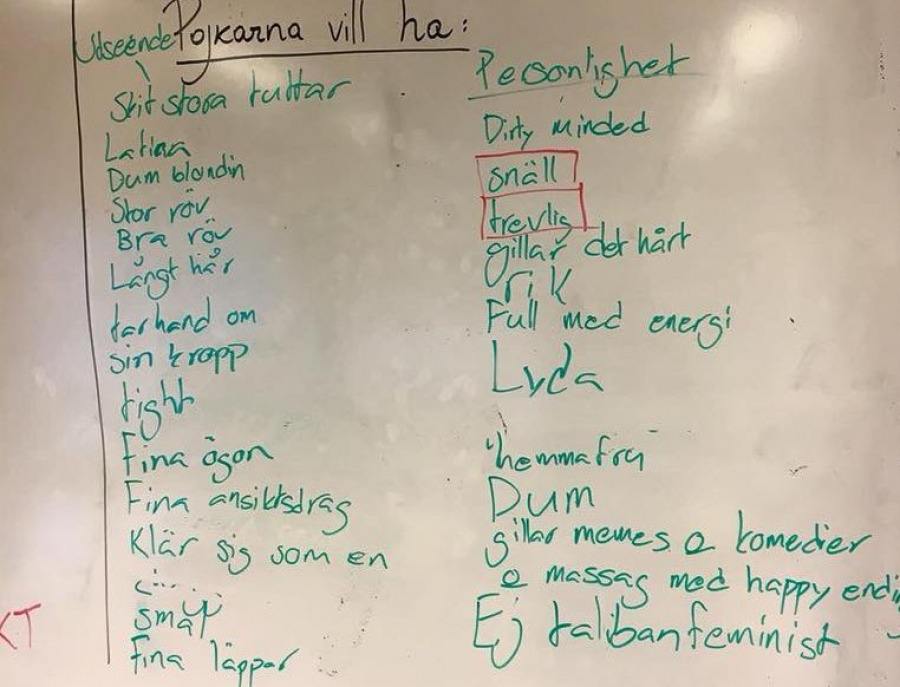 Pojkarna vill ha:
Utseende
Skit stora tuttar
Latina
Dum blondin
Stor röv
Bra röv
Långt hår
tar hand om
sin kropp
tight
Fina ögon
Fina ansiktsdrag
Klär sig som en
smal
Fina läppar
Personlighet
Dirty minded
snäll
trevlig
gillar det hårt
rik
Full med energi
Lyda
"hemmafru"
Dum
gillar memes o komedier
o massag med happy endi
Ej talibanfeminist
KT